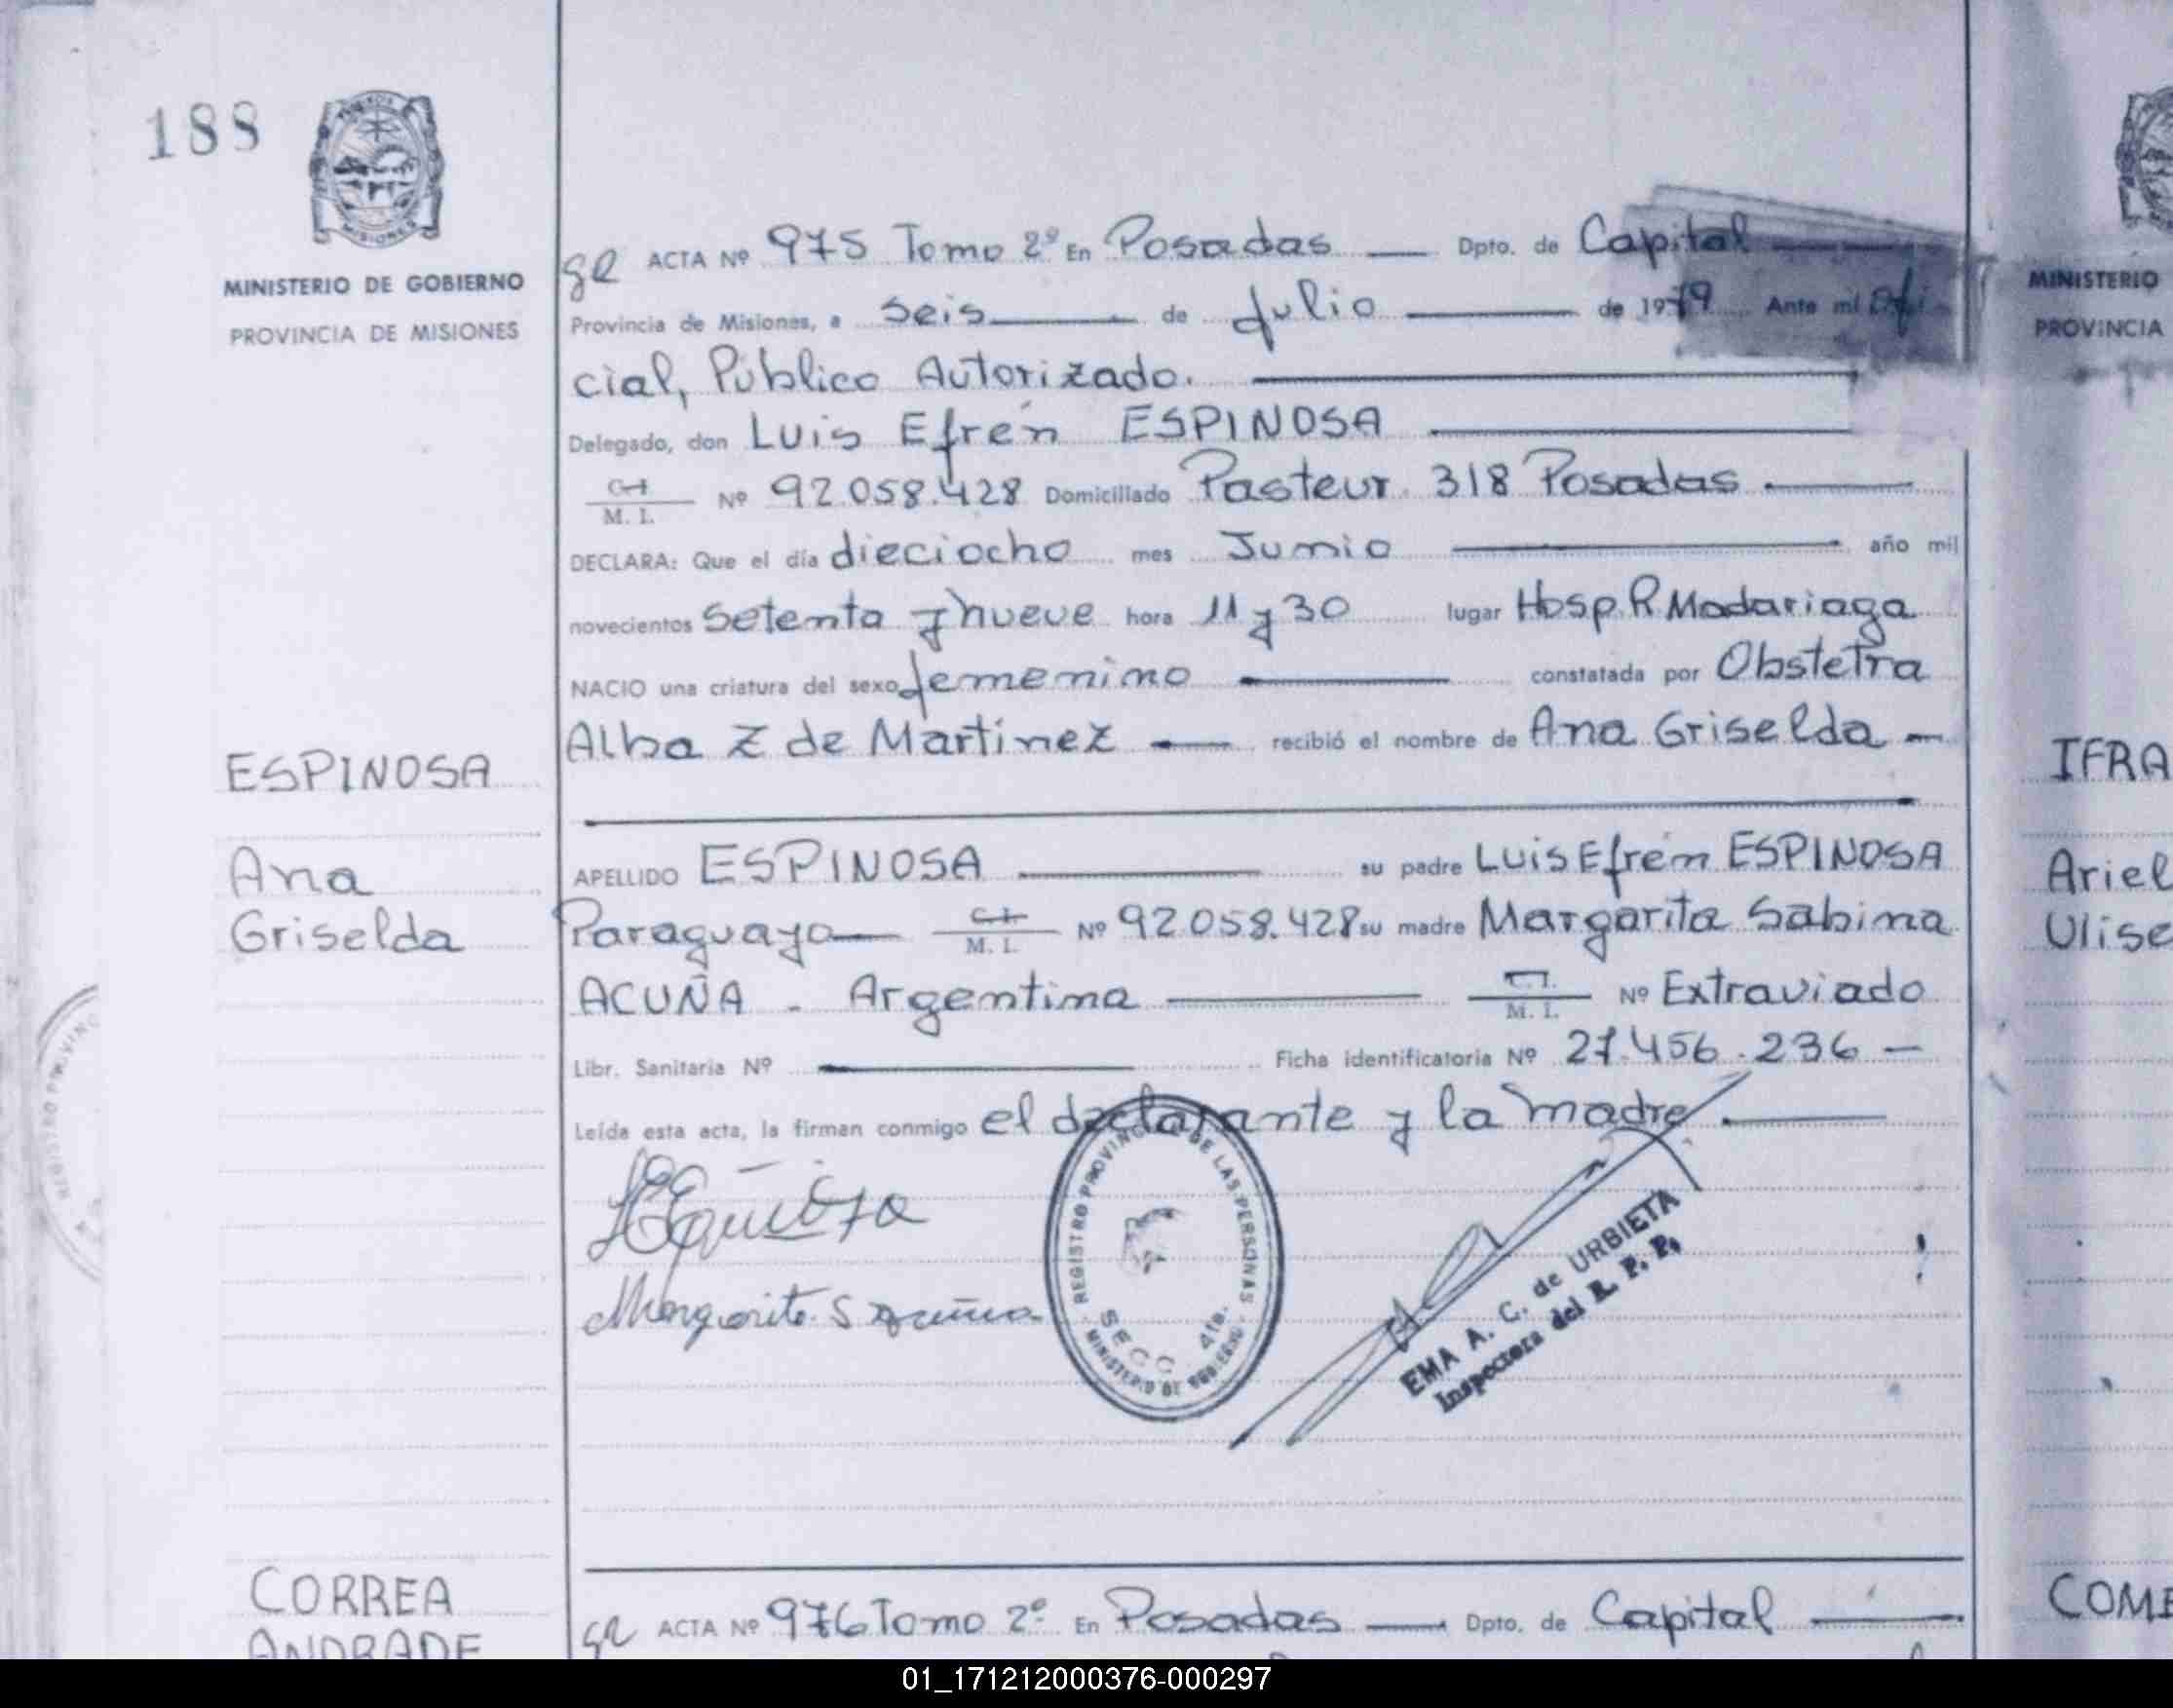 188
MINISTERIO DE GOBIERNO
PROVINCIA DE MISIONES
ACTA Nº 975 Tomo 2º En Posadas Dpto. de Capital
Provincia de Misiones, a seis de Julio de 1979 Ante mí Ofi
cial, Público Autorizado.
Delegado, don Luis Efrén ESPINOSA
C.I. M. I. Nº 92.058.428 Domiciliado Pasteur 318 Posadas
DECLARA: Que el día dieciocho mes Junio año mil
novecientos setenta y nueve hora 11 y 30 lugar Hosp R Madariaga
NACIO una criatura del sexo femenino constatada por Obstetra
Alba Z de Martinez recibió el nombre de Ana Griselda
ESPINOSA
Ana
Griselda
APELLIDO ESPINOSA su padre Luis Efrén ESPINOSA
Paraguayo C.I. M. I. Nº 92.058.428 su madre Margarita Sabina
ACUÑA - Argentina C.I. M. I. Nº Extraviado
Libr. Sanitaria Nº Ficha identificatoria Nº 27.456.236
Leída esta acta, la firman conmigo el declarante y la madre.
Margarita S Acuña
REGISTRO PROVINCIAL DE LAS PERSONAS
SECC. 4ta.
MINISTERIO DE GOBIERNO
EMA A. C. de URBIETA
Inspectora del R. P. P.
CORREA
ANDRADE
ACTA Nº 976 Tomo 2º En Posadas Dpto. de Capital
MINISTERIO
PROVINCIA
IFRA
Ariel
Ulise
COME
REGISTRO PROVINC
01_171212000376-000297